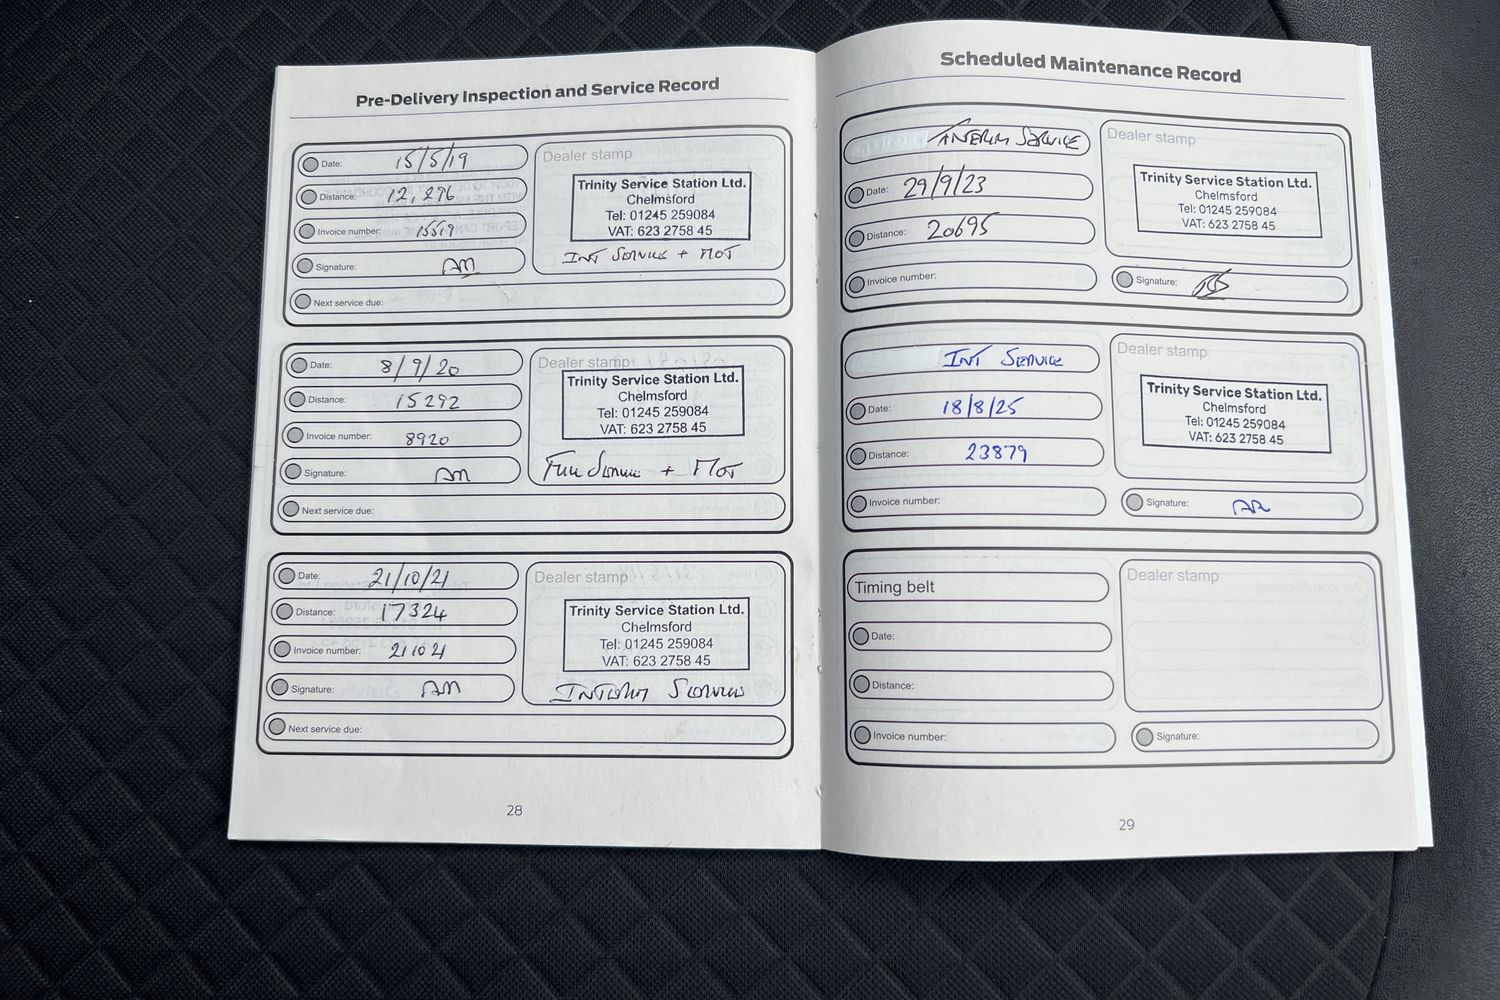 Pre-Delivery Inspection and Service Record
Date: 15/5/19
Distance: 12,296
Invoice number: 15519
Signature: AM
Next service due:
Dealer stamp
Trinity Service Station Ltd.
Chelmsford
Tel: 01245 259084
VAT: 623 2758 45
INT SERVICE + MOT
Date: 8/9/20
Distance: 15292
Invoice number: 8920
Signature: AM
Next service due:
Dealer stamp
Trinity Service Station Ltd.
Chelmsford
Tel: 01245 259084
VAT: 623 2758 45
Full Service + MOT
Date: 21/10/21
Distance: 17324
Invoice number: 211021
Signature: AM
Next service due:
Dealer stamp
Trinity Service Station Ltd.
Chelmsford
Tel: 01245 259084
VAT: 623 2758 45
INTERIM SERVICE
28
Scheduled Maintenance Record
INTERIM SERVICE
Date: 29/9/23
Distance: 20695
Invoice number:
Dealer stamp
Trinity Service Station Ltd.
Chelmsford
Tel: 01245 259084
VAT: 623 2758 45
Signature:
INT SERVICE
Date: 18/8/25
Distance: 23879
Invoice number:
Dealer stamp
Trinity Service Station Ltd.
Chelmsford
Tel: 01245 259084
VAT: 623 2758 45
Signature:
Timing belt
Date:
Distance:
Invoice number:
Dealer stamp
Signature:
29